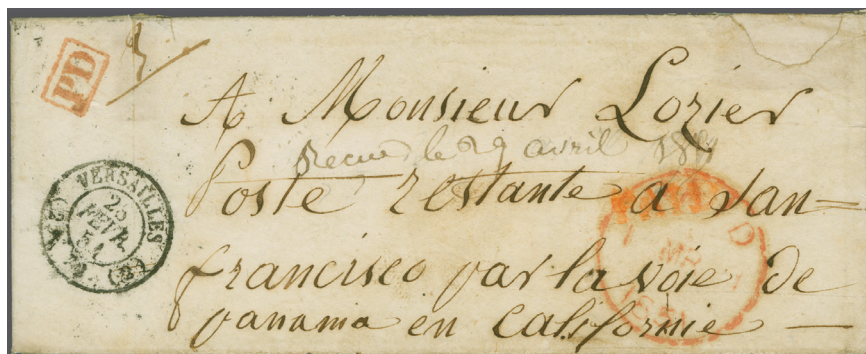 PD
A Monsieur Lozier
recue le 29 avril
Poste restante a San=
francisco par la voie de
panama en Californie —
VERSAILLES
FEVR.
51
(2)
PAID
1851